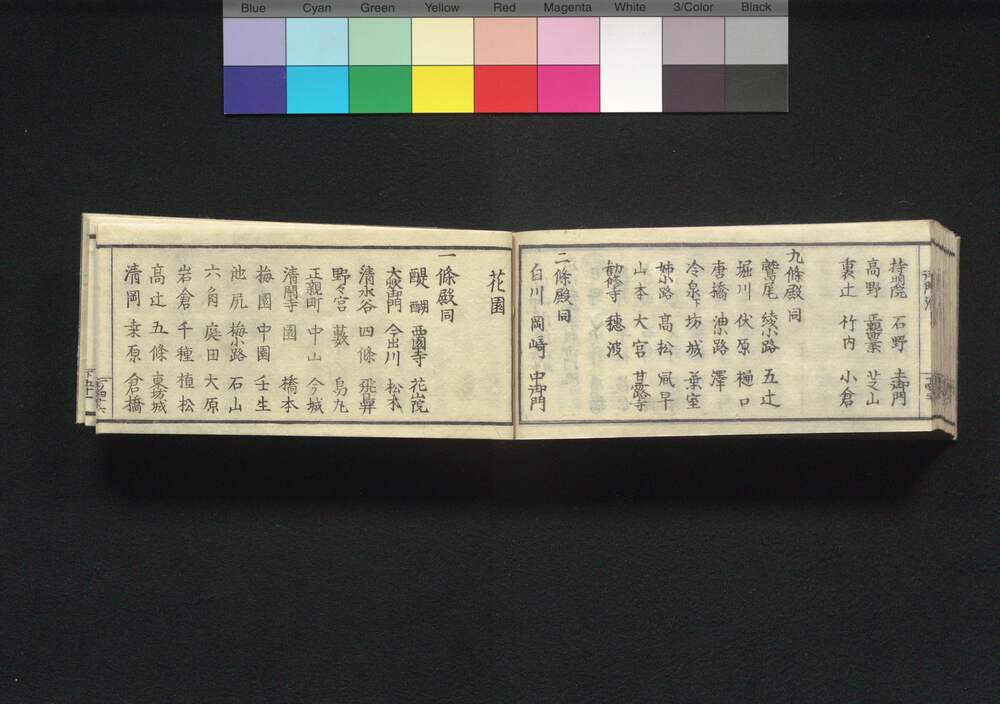 Blue Cyan Green Yellow Red Magenta White 3/Color Black
持明院 石野 土御門
高野 正親町三条 芝山
裏辻 竹内 小倉
九條殿同
鷲尾 綾小路 五辻
堀川 伏原 樋口
唐橋 油小路 澤
冷泉下 坊城 葉室
姉小路 高松 風早
山本 大宮 甘露寺
勧修寺 穂波
二條殿同
白川 岡崎 中御門
花園
一條殿同
醍醐 西園寺 花山院
大炊御門 今出川 松木
清水谷 四條 飛鳥井
野々宮 藪 烏丸
正親町 中山 今城
清閑寺 園 橋本
梅園 中園 壬生
池尻 梅小路 石山
六角 庭田 大原
岩倉 千種 植松
髙辻 五條 東坊城
清岡 桒原 倉橋